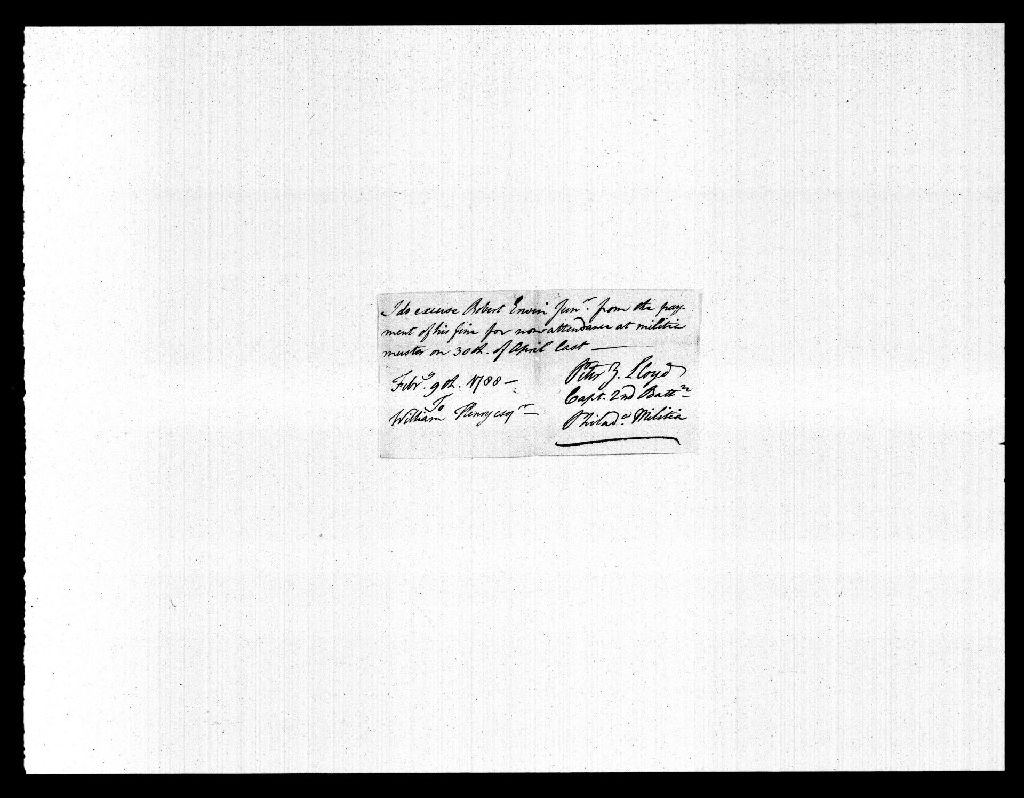 I do excuse Robert Erwin Junr. from the pay-
ment of his fine for non attendance at militia
muster on 30th. of April last —
Febry. 9th. 1788 —
Peter Z. Lloyd
Capt. 2nd Battn.
To
William Henry esqr —
Philada. Militia